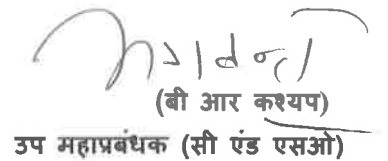 (बी आर कश्यप)
उप महाप्रबंधक (सी एंड एसओ)